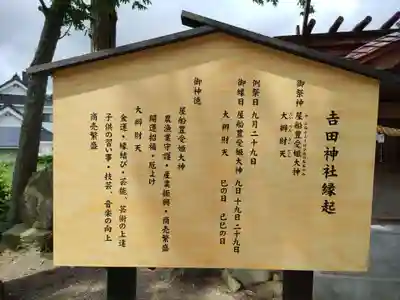 吉田神社縁起
御祭神
屋船豊受姫大神
大辨財天
例祭日 九月二十九日
御縁日 屋船豊受姫大神 九日 十九日 二十九日
大辨財天 巳の日 己巳の日
御神徳
屋船豊受姫大神
農漁業守護・産業振興・商売繁盛
開運招福・厄よけ
大辨財天
金運・縁結び・芸能、芸術の上達
子供の習い事・技芸、音楽の向上
商売繁盛